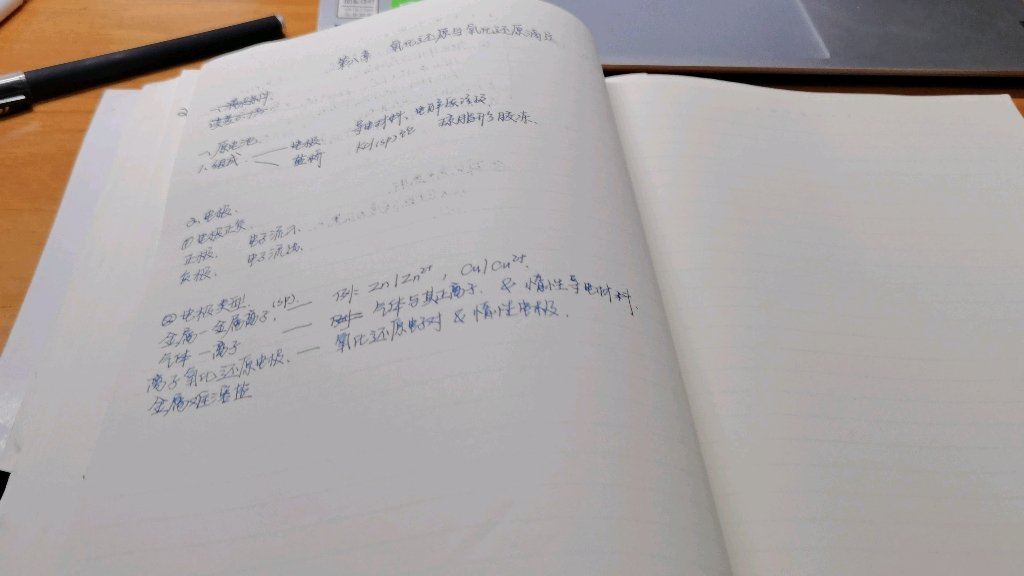 第八章 氧化还原与氧化还原滴定
一、原电池.
1、组成 电极 导电材料、电解质溶液.
盐桥 KCl(sp)溶 琼脂形成胶冻.
2、电极.
①电极正负
正极. 电子流入.
负极. 电子流出.
②电极类型.
金属-金属离子. (sp). — 例: Zn|Zn²⁺, Cu|Cu²⁺.
气体-离子 — 气体与其正离子. & 惰性导电材料.
离子氧化还原电极. — 氧化还原电子对 & 惰性电极.
金属难溶盐